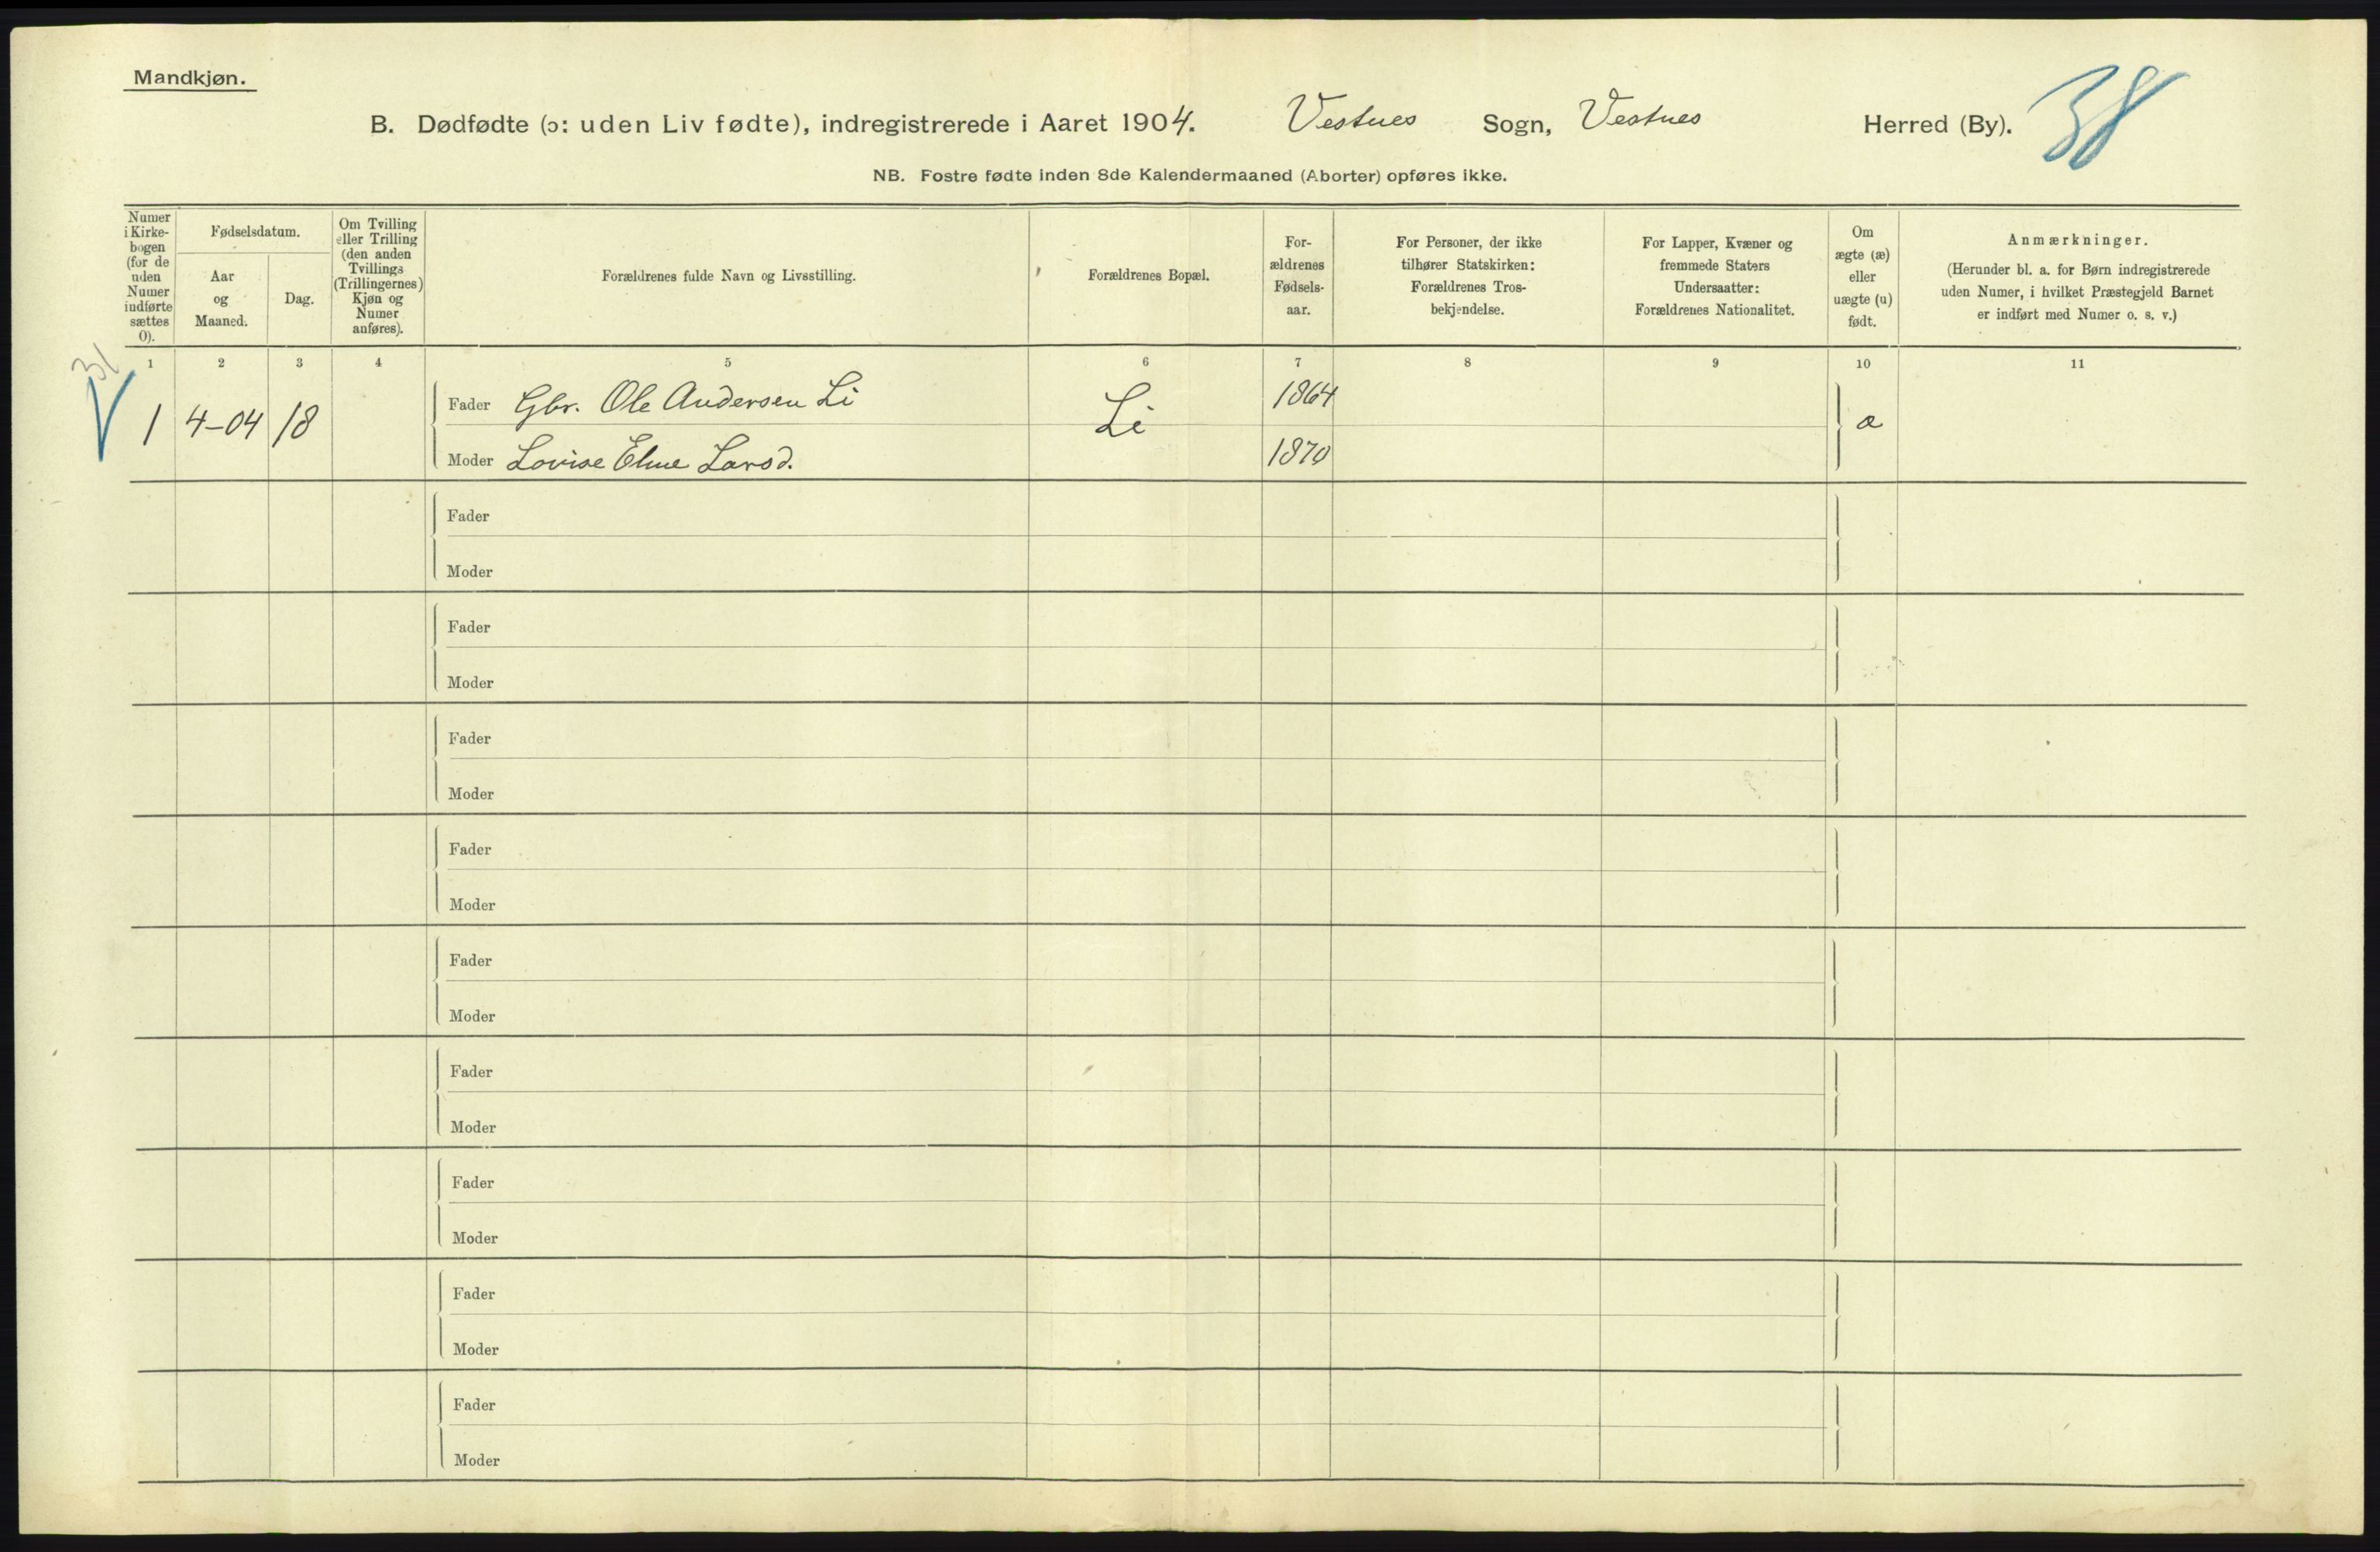 Mandkjøn.
B. Dødfødte (ɔ: uden Liv fødte), indregistrerede i Aaret 1904. Vestnes Sogn, Vestnes Herred (By). 38
NB. Fostre fødte inden 8de Kalendermaaned (Aborter) opføres ikke.
Numer
i Kirke-
bogen
(for de
uden
Numer
indførte
sættes
0).
Fødselsdatum.
Aar
og
Maaned.
Dag.
Om Tvilling
eller Trilling
(den anden
Tvillings
(Trillingernes)
Kjøn og
Numer
anføres).
Forældrenes fulde Navn og Livsstilling.
Forældrenes Bopæl.
For-
ældrenes
Fødsels-
aar.
For Personer, der ikke
tilhører Statskirken:
Forældrenes Tros-
bekjendelse.
For Lapper, Kvæner og
fremmede Staters
Undersaatter:
Forældrenes Nationalitet.
Om
ægte (æ)
eller
uægte (u)
født.
Anmærkninger.
(Herunder bl. a. for Børn indregistrerede
uden Numer, i hvilket Præstegjeld Barnet
er indført med Numer o. s. v.)
1 2 3 4 5 6 7 8 9 10 11
31
Fader Gbr. Ole Andersen Li 1864
1 4-04 18 Li æ
Moder Lovise Larsd. 1870
Fader
Moder
Fader
Moder
Fader
Moder
Fader
Moder
Fader
Moder
Fader
Moder
Fader
Moder
Fader
Moder
Fader
Moder